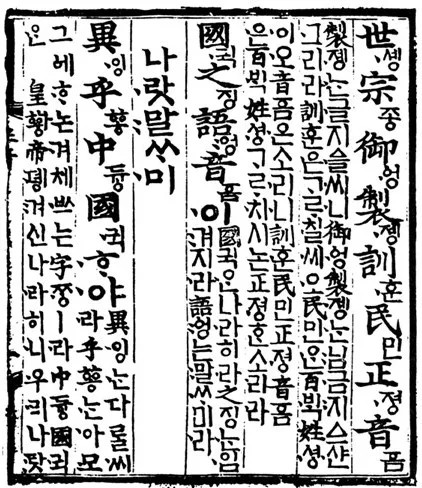 世솅宗종御ᅌᅥᆼ製졩訓훈民민正졍音ᅙᅳᆷ
製졩는글지ᅀᅳᆯ씨니御ᅌᅥᆼ製졩는님금지ᅀᅳ샨
그리라訓훈은ᄀᆞᄅᆞ칠씨오民민ᄋᆞᆫ百ᄇᆡᆨ姓셩
이오音ᅙᅳᆷ은소리니訓훈民민正졍音ᅙᅳᆷ
은百ᄇᆡᆨ姓셩ᄀᆞᄅᆞ치시논正졍ᄒᆞᆫ소리라
國귁之징語ᅌᅥᆼ音ᅙᅳᆷ이
國귁ᄋᆞᆫ나라히라之징ᄂᆞᆫ입
겨지라語ᅌᅥᆼ는말ᄊᆞ미라
나랏말ᄊᆞ미
異잉乎ᅘᅩᆼ中듀ᇰ國귁ᄒᆞ야
異잉ᄂᆞᆫ다ᄅᆞᆯ씨
라乎ᅘᅩᆼᄂᆞᆫ아모
그ᅌᅦᄒᆞ논겨체ᄡᅳ는字ᄍᆞᆼㅣ라中듀ᇰ國귁
ᄋᆞᆫ皇ᅘᅪᇰ帝뎽겨신나라히니우리나랏